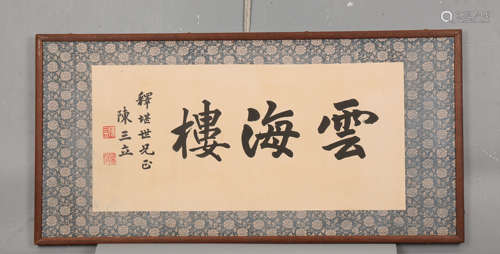 雲海樓
釋堪世兄正
陳三立